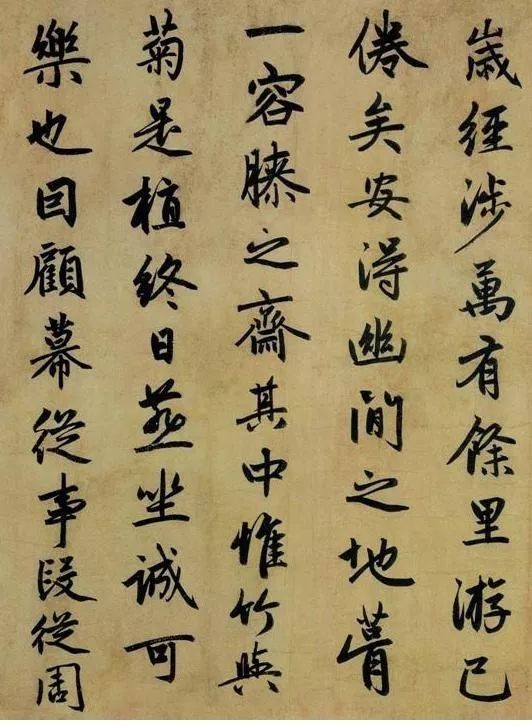 歲經涉萬有餘里游已
倦矣安得幽閒之地菅
一容膝之齋其中惟竹與
菊是植終日燕坐誠可
樂也因顧幕從事段從周